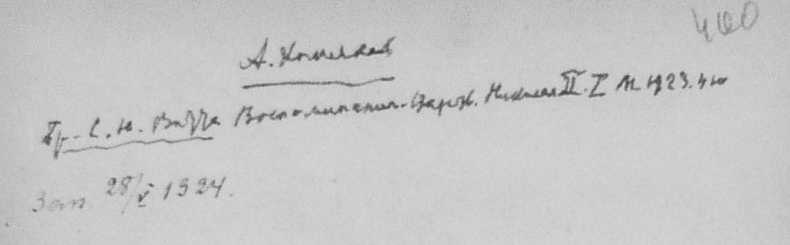 400
А. Хомяков
Гр. С. Ю. Витте Воспоминания. Царств. Николая II. I М. 1923. 4 ю
Зап. 28/V 1924.